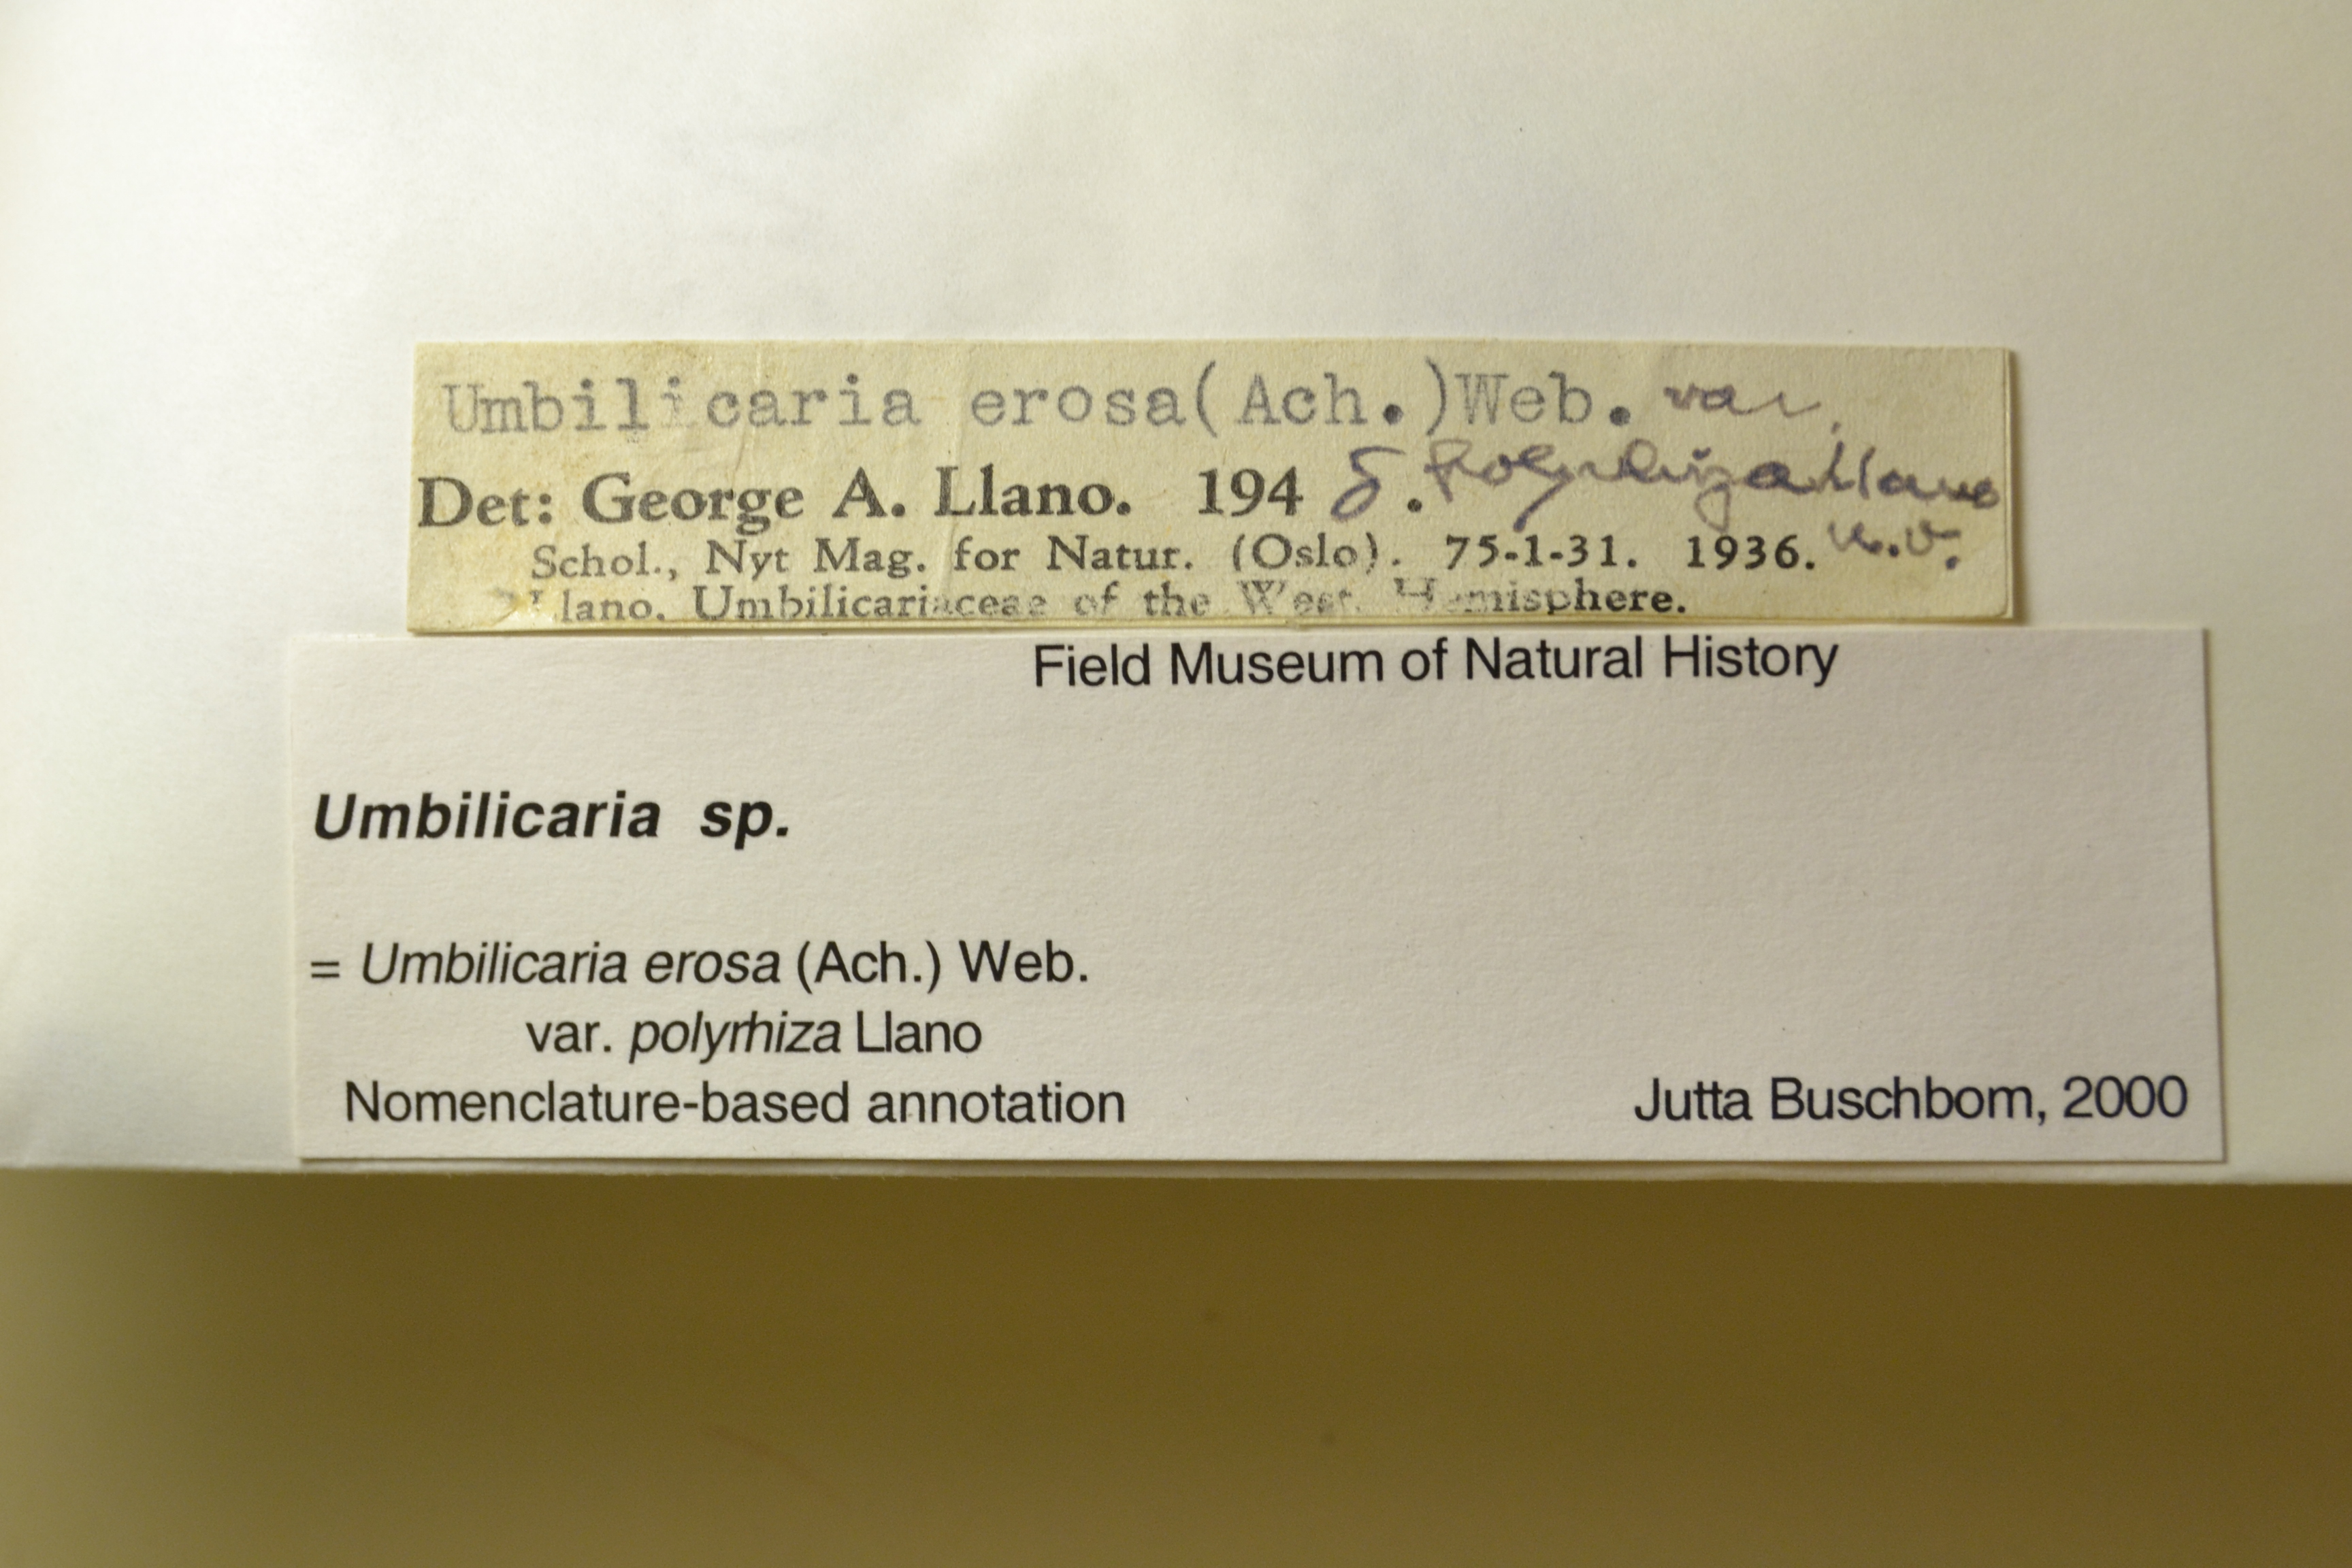 Umbilicaria erosa(Ach.)Web. var.
Det: George A. Llano. 1945. Polyrhiza Llano
Schol., Nyt Mag. for Natur. (Oslo). 75-1-31. 1936. n.v.
Llano. Umbilicariaceae of the West. Hemisphere.
Field Museum of Natural History
Umbilicaria sp.
= Umbilicaria erosa (Ach.) Web.
var. polyrhiza Llano
Nomenclature-based annotation
Jutta Buschbom, 2000